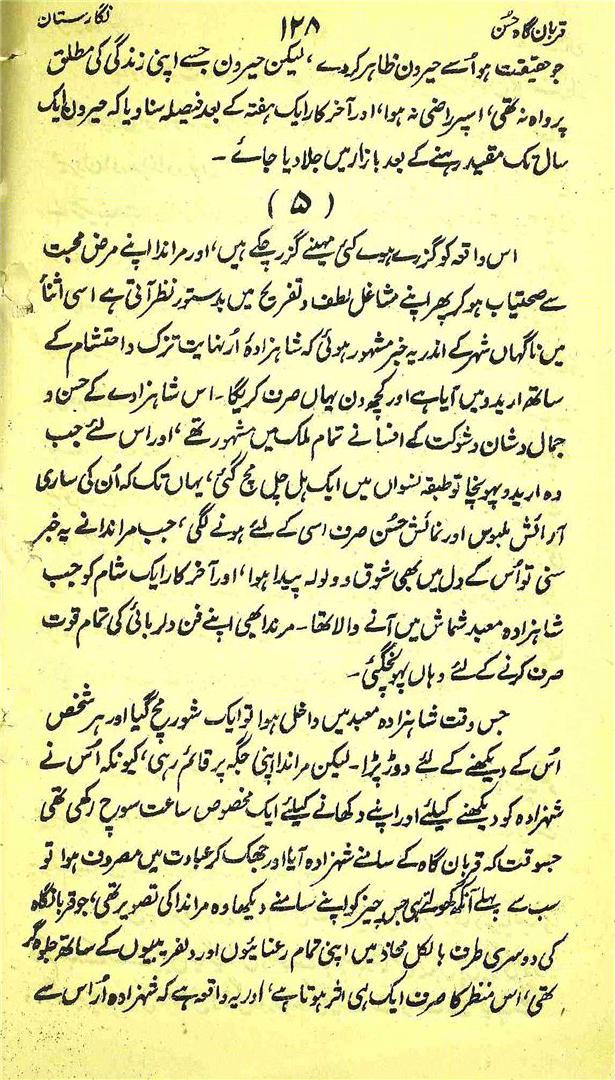 قربان گاہ حُسن ۱۲۸ نگارستان
جو حقیقت ہو اُسے حیرون ظاہر کردے، لیکن حیرون جسے اپنی زندگی کی مطلق
پرواہ نہ تھی، اسپر راضی نہ ہوا، اور آخر کار ایک ہفتہ کے بعد فیصلہ سنا دیا کہ حیرون ایک
سال تک مقید رہنے کے بعد بازار میں جلا دیا جائے ۔
(۵)
اس واقعہ کو گزرے ہوے کئی مہینے گزر چکے ہیں، اور مراندا اپنے مرض محبت
سے صحتیاب ہو کر پھر اپنے مشاغل لطف و تفریح میں بدستور نظر آتی ہے اسی اثناءُ
میں ناگہاں شہر کے اندر یہ خبر مشہور ہوئی کہ شاہزادہ اُر نہایت تزک و احتشام کے
ساتھ اریدو میں آیا ہے اور کچھ دن یہاں صرف کریگا ۔ اس شاہزادے کے حسن و
جمال و شان و شوکت کے افسانے تمام ملک میں مشہور تھے، اور اس لئے جب
وہ اریدو پہونچا تو طبقہ نسواں میں ایک ہل چل مچ گئی، یہاں تک کہ اُن کی ساری
آرائش ملبوس اور نمائش حُسن صرف اسی کے لئے ہونے لگی، جب مراندا نے یہ خبر
سنی تو اُس کے دل میں بھی شوق و ولولہ پیدا ہوا، اور آخر کار ایک شام کو جب
شاہزادہ معبد شماش میں آنے والا تھا ۔ مرندا بھی اپنے فن دلربائی کی تمام قوت
صرف کرنے کے لئے وہاں پہونچگئی ۔
جس وقت شاہزادہ معبد میں داخل ہوا تو ایک شور مچ گیا اور ہر شخص
اُس کے دیکھنے کے لئے دوڑ پڑا ۔ لیکن مراندا اپنی جگہ پر قائم رہی، کیونکہ اُس نے
شہزادہ کو دیکھنے کیلئے اور اپنے دکھانے کیلئے ایک مخصوص ساعت سوچ رکھی تھی
جسوقت کہ قربان گاہ کے سامنے شہزادہ آیا اور جھک کر عبادت میں مصروف ہوا تو
سب سے پہلے آنکھ کھولتے ہی جس چیز کو اپنے سامنے دیکھا وہ مراندا کی تصویر تھی، جو قربانگاہ
کی دوسری طرف بالکل محاذ میں اپنی تمام رعنائیوں اور دلفریبیوں کے ساتھ جلوہ گر
تھی، اس منظر کا صرف ایک ہی اثر ہوتا ہے، اور یہ واقعہ ہے کہ شہزادہ اُر اس سے